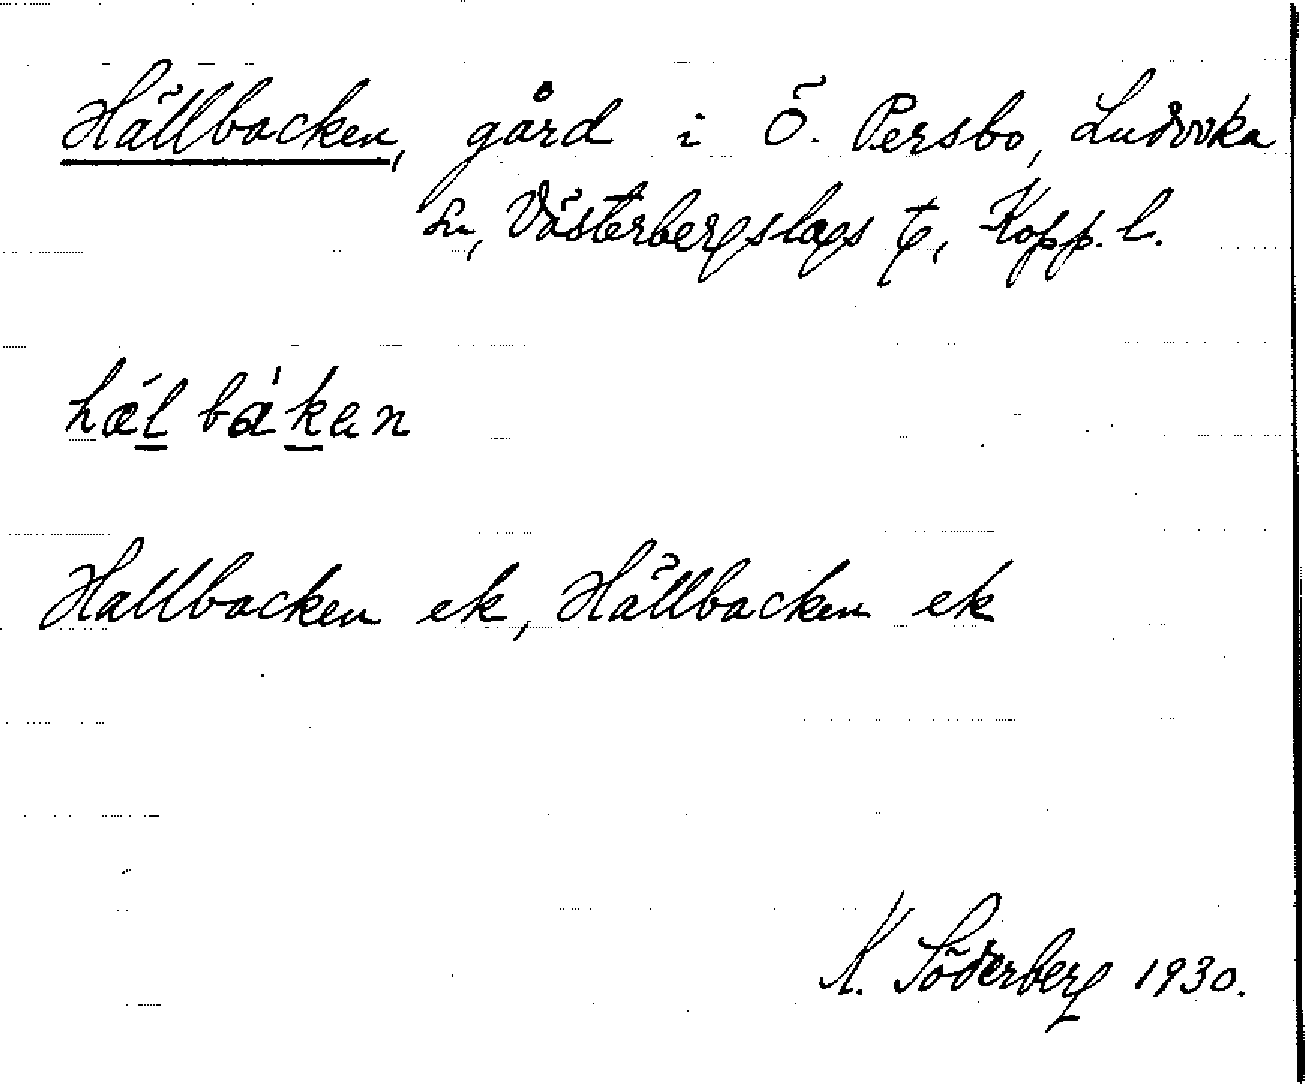 Hällbacken, gård i Ö. Persbo, Ludvika
sn, Västerbergslags tg, Kopp. l.
hǽl bá̀ken
Hallbacken ek, Hällbacken ek
K. Söderberg 1930.